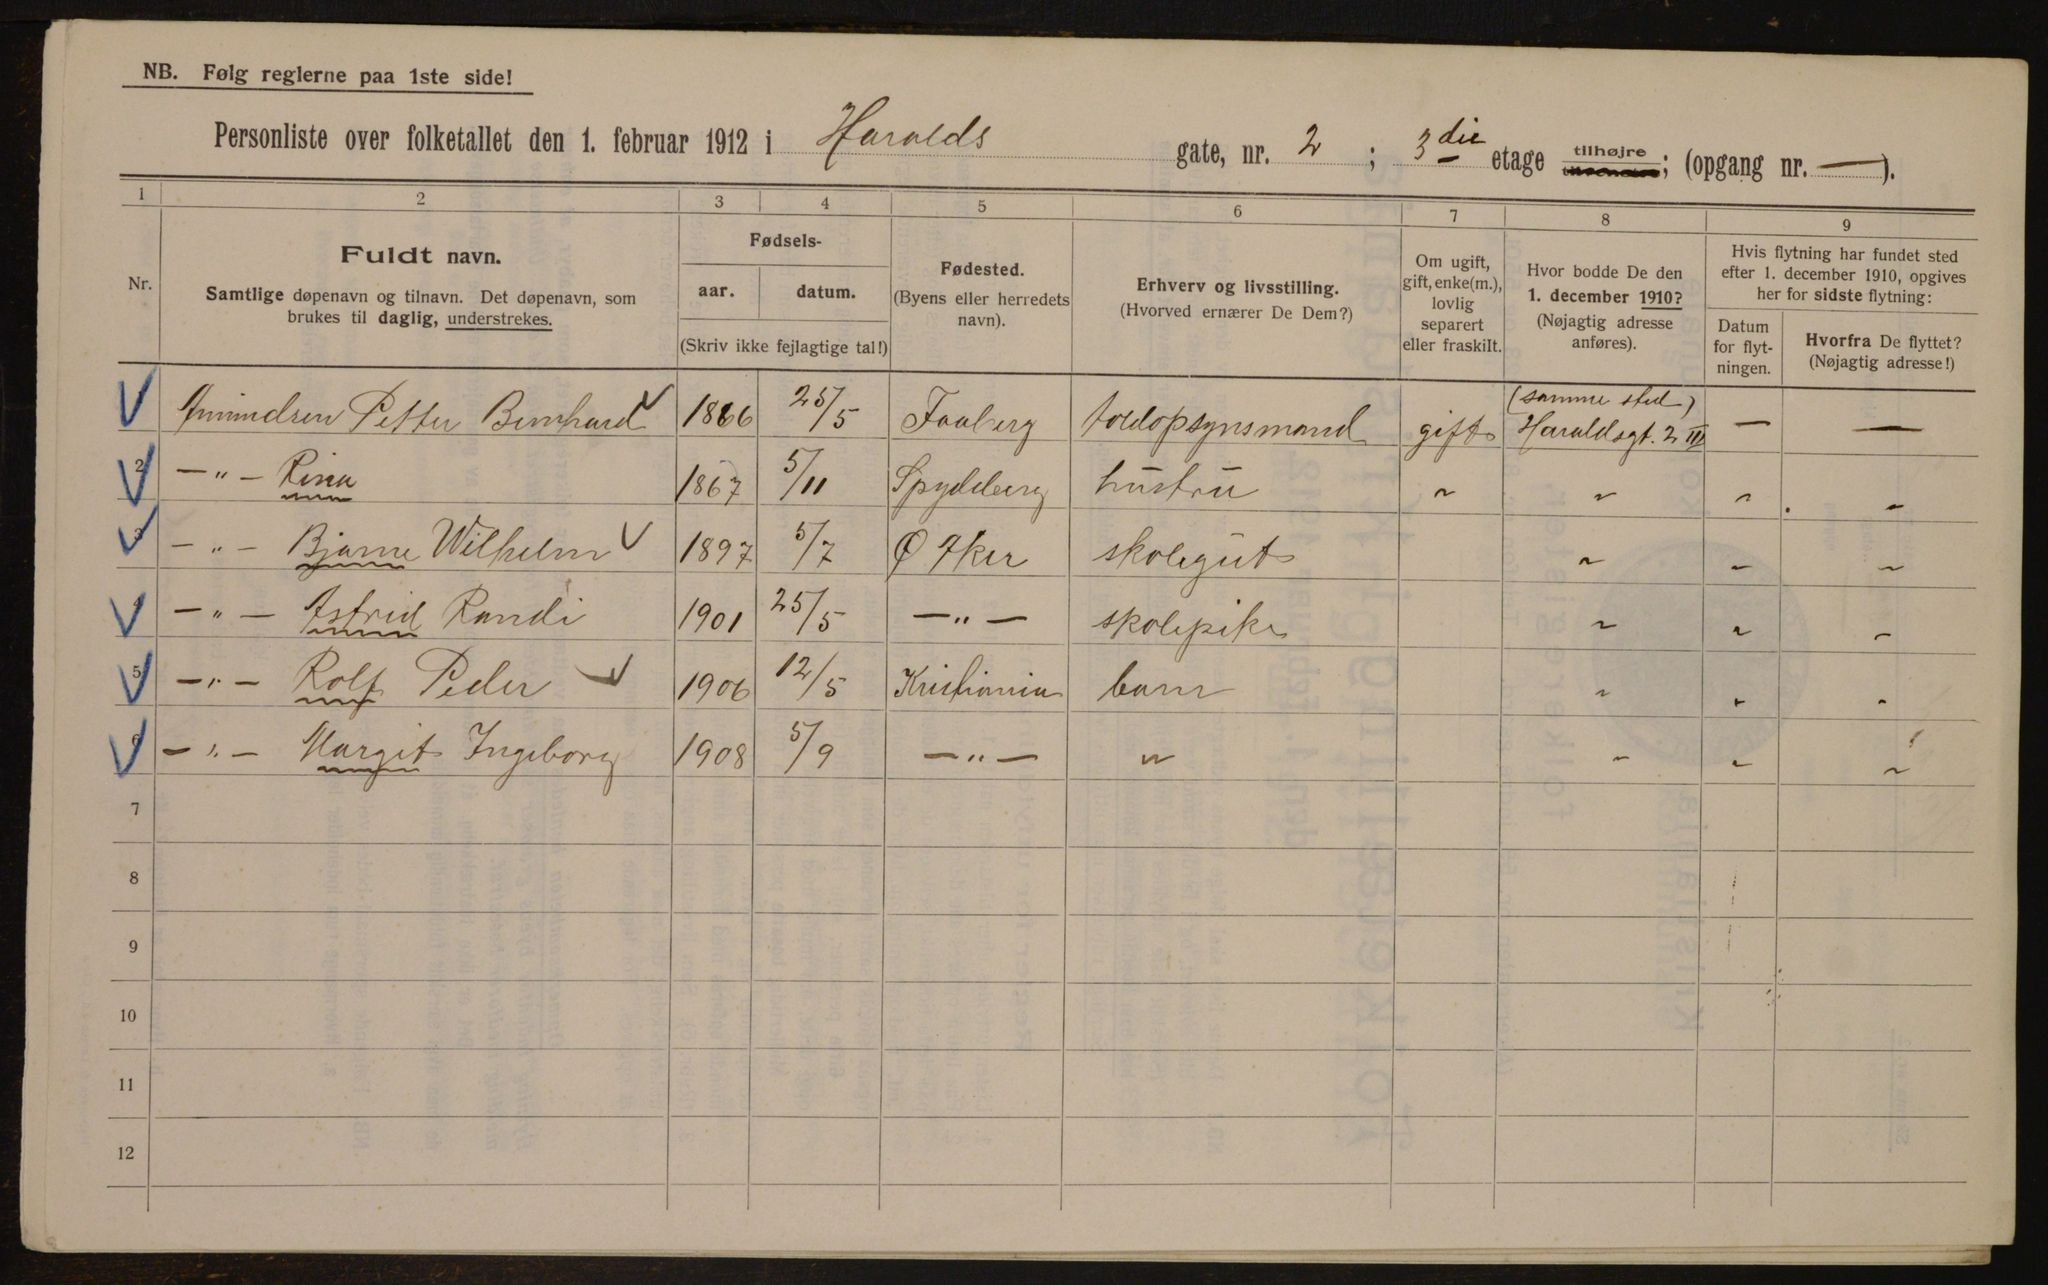 NB. Følg reglerne paa 1ste side!
Personliste over folketallet den 1. februar 1912 i Haralds gate, nr. 2 ; 3die etage tilhøjre; (opgang nr. — ).
1 2 3 4 5 6 7 8 9
Nr.
Fuldt navn.
Samtlige døpenavn og tilnavn. Det døpenavn, som
brukes til daglig, understrekes.
Fødsels-
aar. datum.
(Skriv ikke fejlagtige tal!)
Fødested.
(Byens eller herredets
navn).
Erhverv og livsstilling.
(Hvorved ernærer De Dem?)
Om ugift,
gift, enke(m.),
lovlig
separert
eller fraskilt.
Hvor bodde De den
1. december 1910?
(Nøjagtig adresse
anføres).
Hvis flytning har fundet sted
efter 1. december 1910, opgives
her for sidste flytning:
Datum
for flyt-
ningen.
Hvorfra De flyttet?
(Nøjagtig adresse!)
(samme sted)
Amundsen Petter Bernhard 1866 25/5 Faaberg toldopsynsmand gift Haraldsgt. 2 III — —
2 — " — Rina 1867 5/11 Spydeberg hustru " " " "
3 — " — Bjarne Wilhelm 1897 5/7 Ø Aker skolegut " " "
4 — " — Astrid Randi 1901 25/5 — " — skolepike " " "
5 — " — Rolf Peder 1906 12/5 Kristiania barn " " "
6 — " — Margit Ingeborg 1908 5/9 — " — " " " "
7
8
9
10
11
12